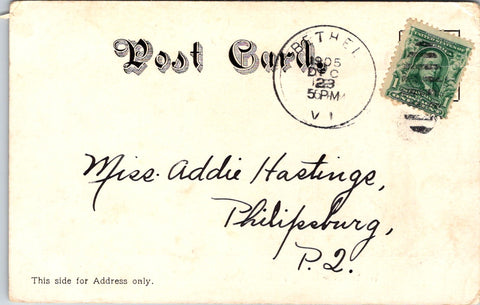 Post Card.
BETHEL
1905
DEC
23
5 PM
VT
Miss. Addie Hastings,
Philipsburg,
P.Q.
This side for Address only.